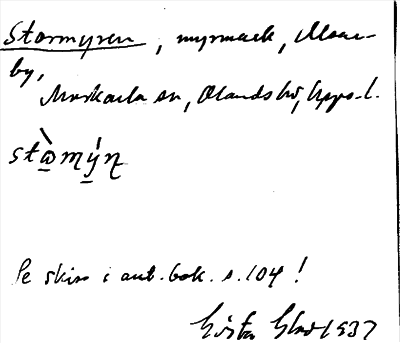 Stormyren, myrmark, Moar-
by,
Morkarla sn, Olands hd, Upps. l.
stàmýn
Se skiss i ant.bok. s. 104!
Gösta 1937